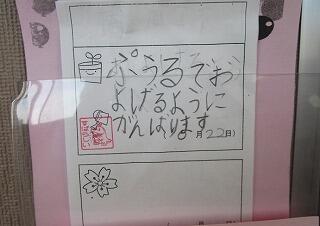 ぷうるでお
よげるように
がんばります
月22日)